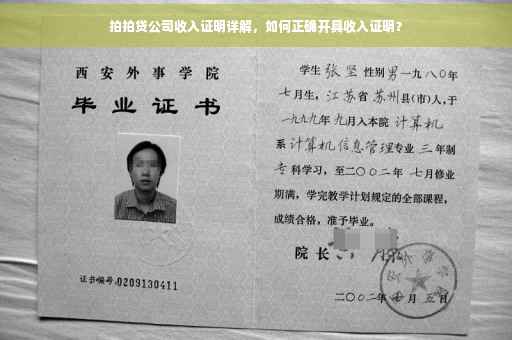 拍拍贷公司收入证明详解，如何正确开具收入证明？
西安外事学院
毕业证书
证书编号:0209130411
学生 张坚 性别男一九八〇年
七月生，江苏省苏州县(市)人,于
一九九九年九月入本院 计算机
系计算机信息管理专业 三 年制
专科学习，至二〇〇二年 七月修业
期满，学完教学计划规定的全部课程，
成绩合格，准予毕业。
院长
二〇〇二年 月五日